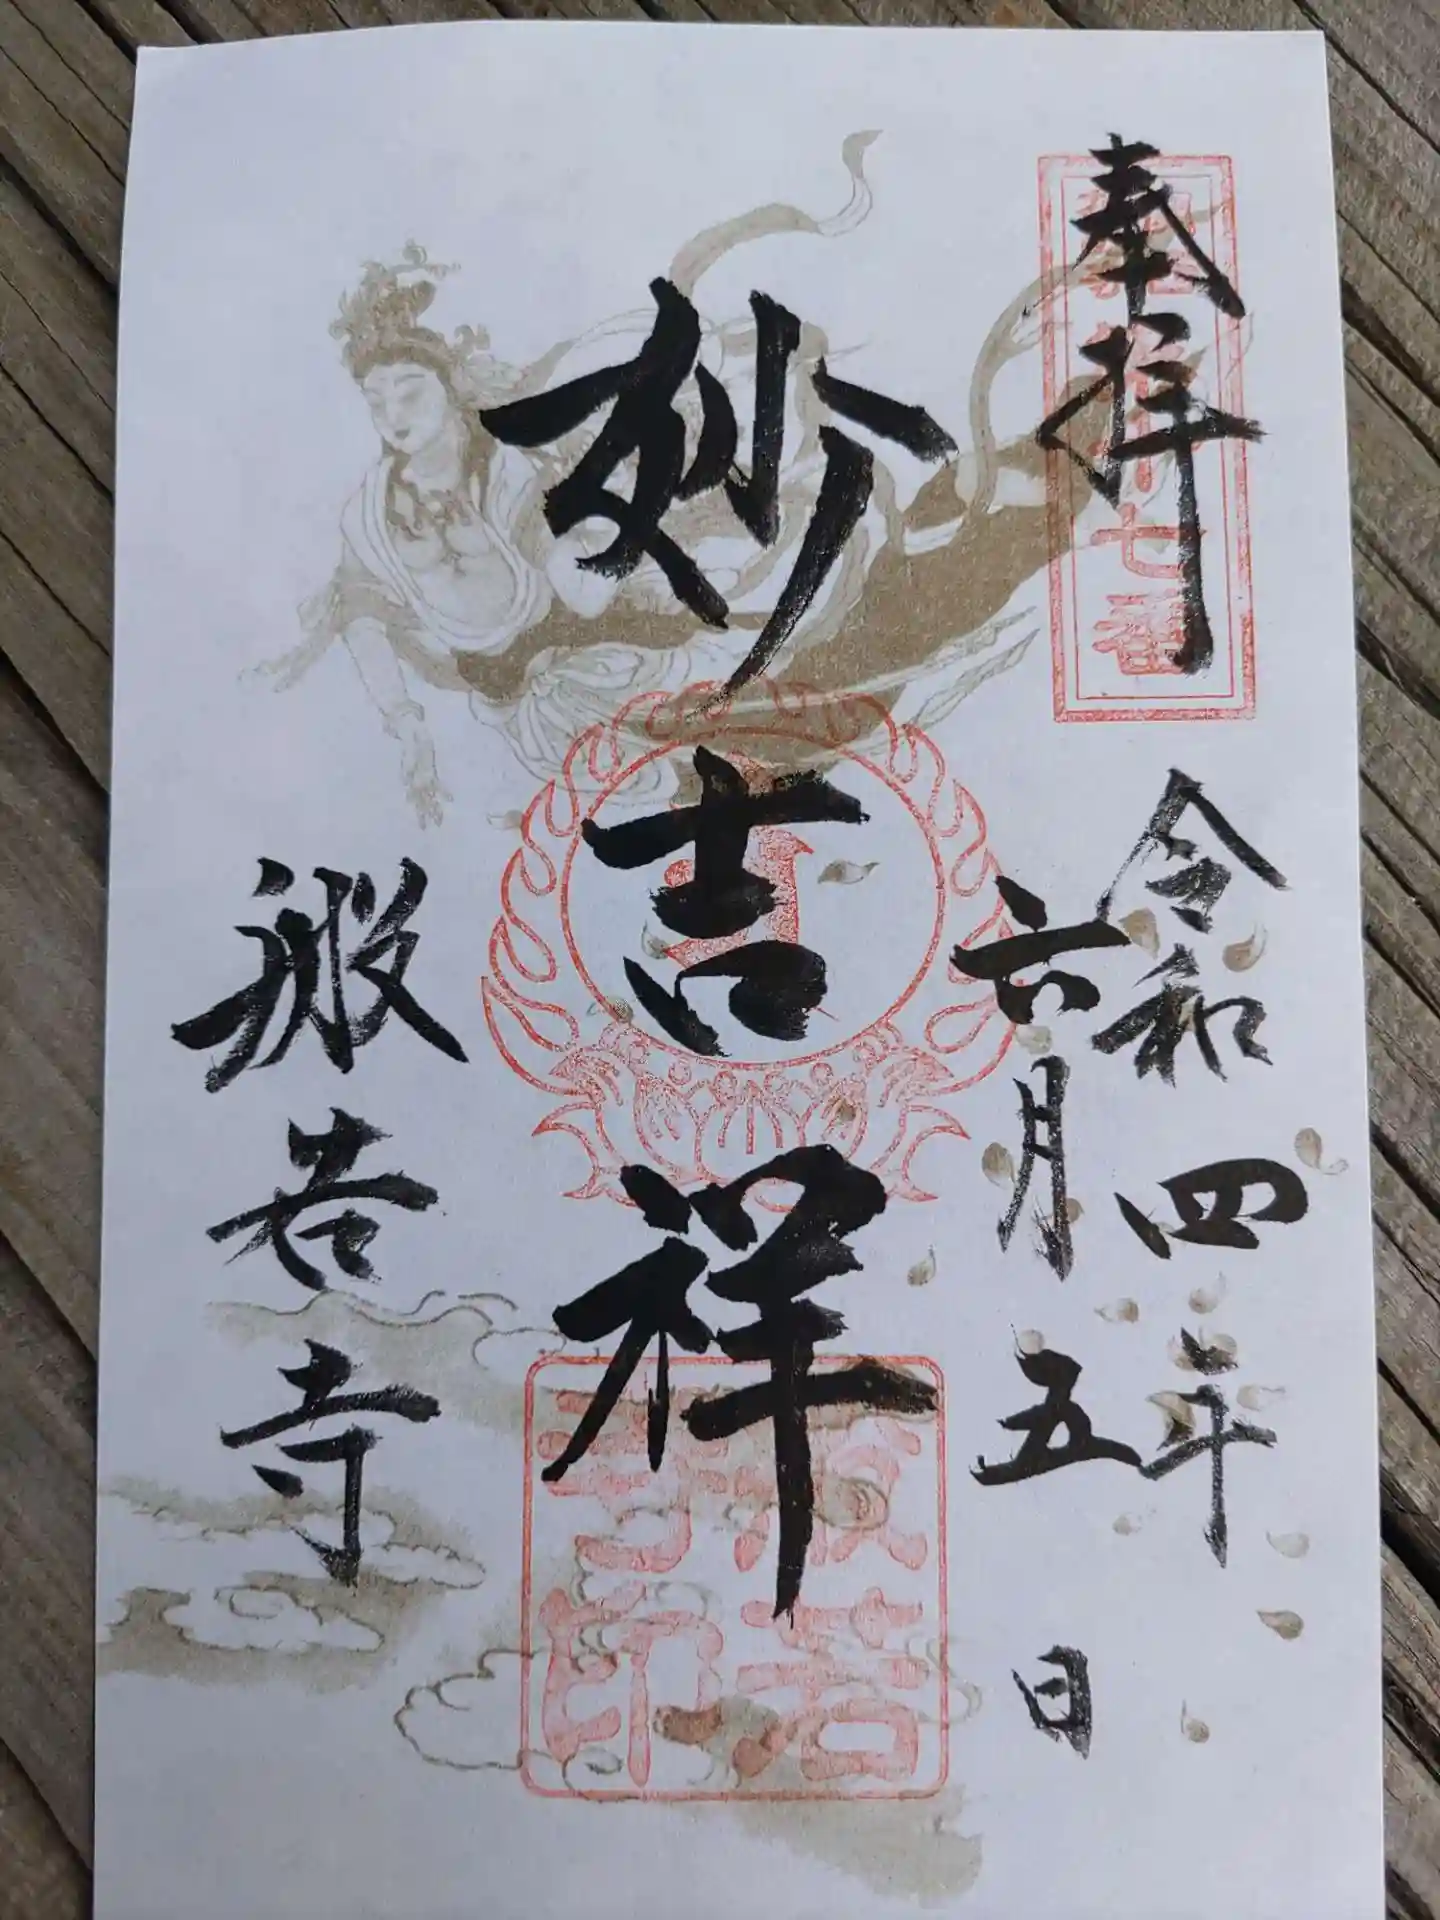 奉拝
七番
令和四年
六月五日
妙吉祥
般若寺
般若寺印